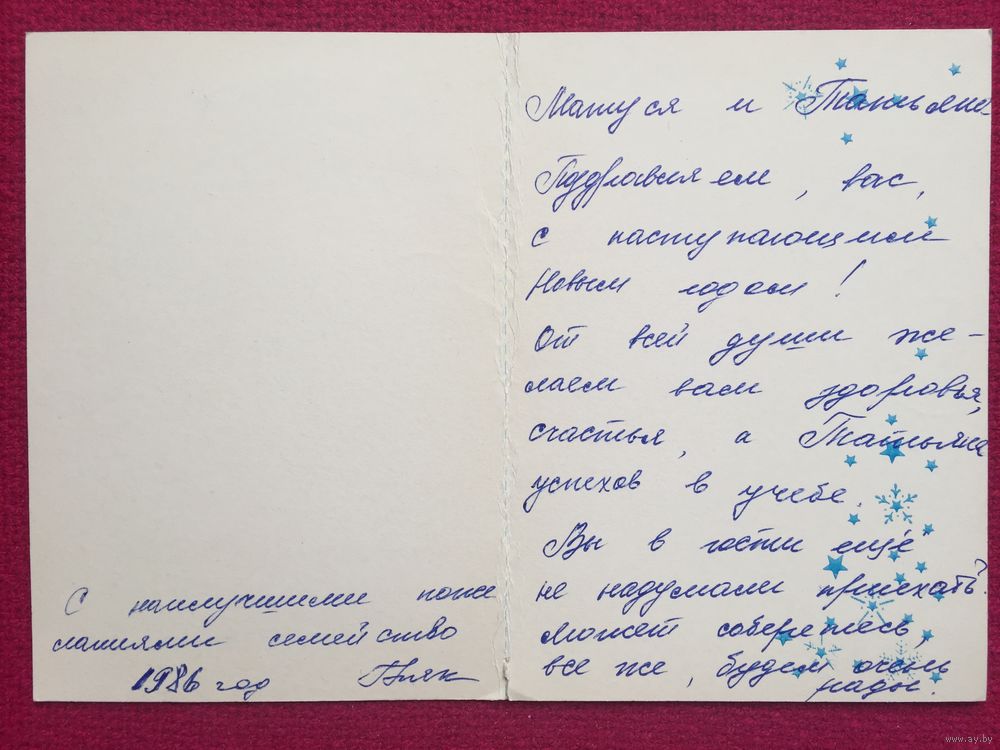 Матуся и Татьяна
Поздравляем, вас,
с наступающим
Новым годом!
От всей души же-
лаем вам здоровья,
счастья, а Татьяне
успехов в учебе.
Вы в гости ещё
не надумали приехать?
может соберетесь,
все же, будем очень
рады.
С наилучшими поже
ланиями семейство
1986 год
www.ay.by